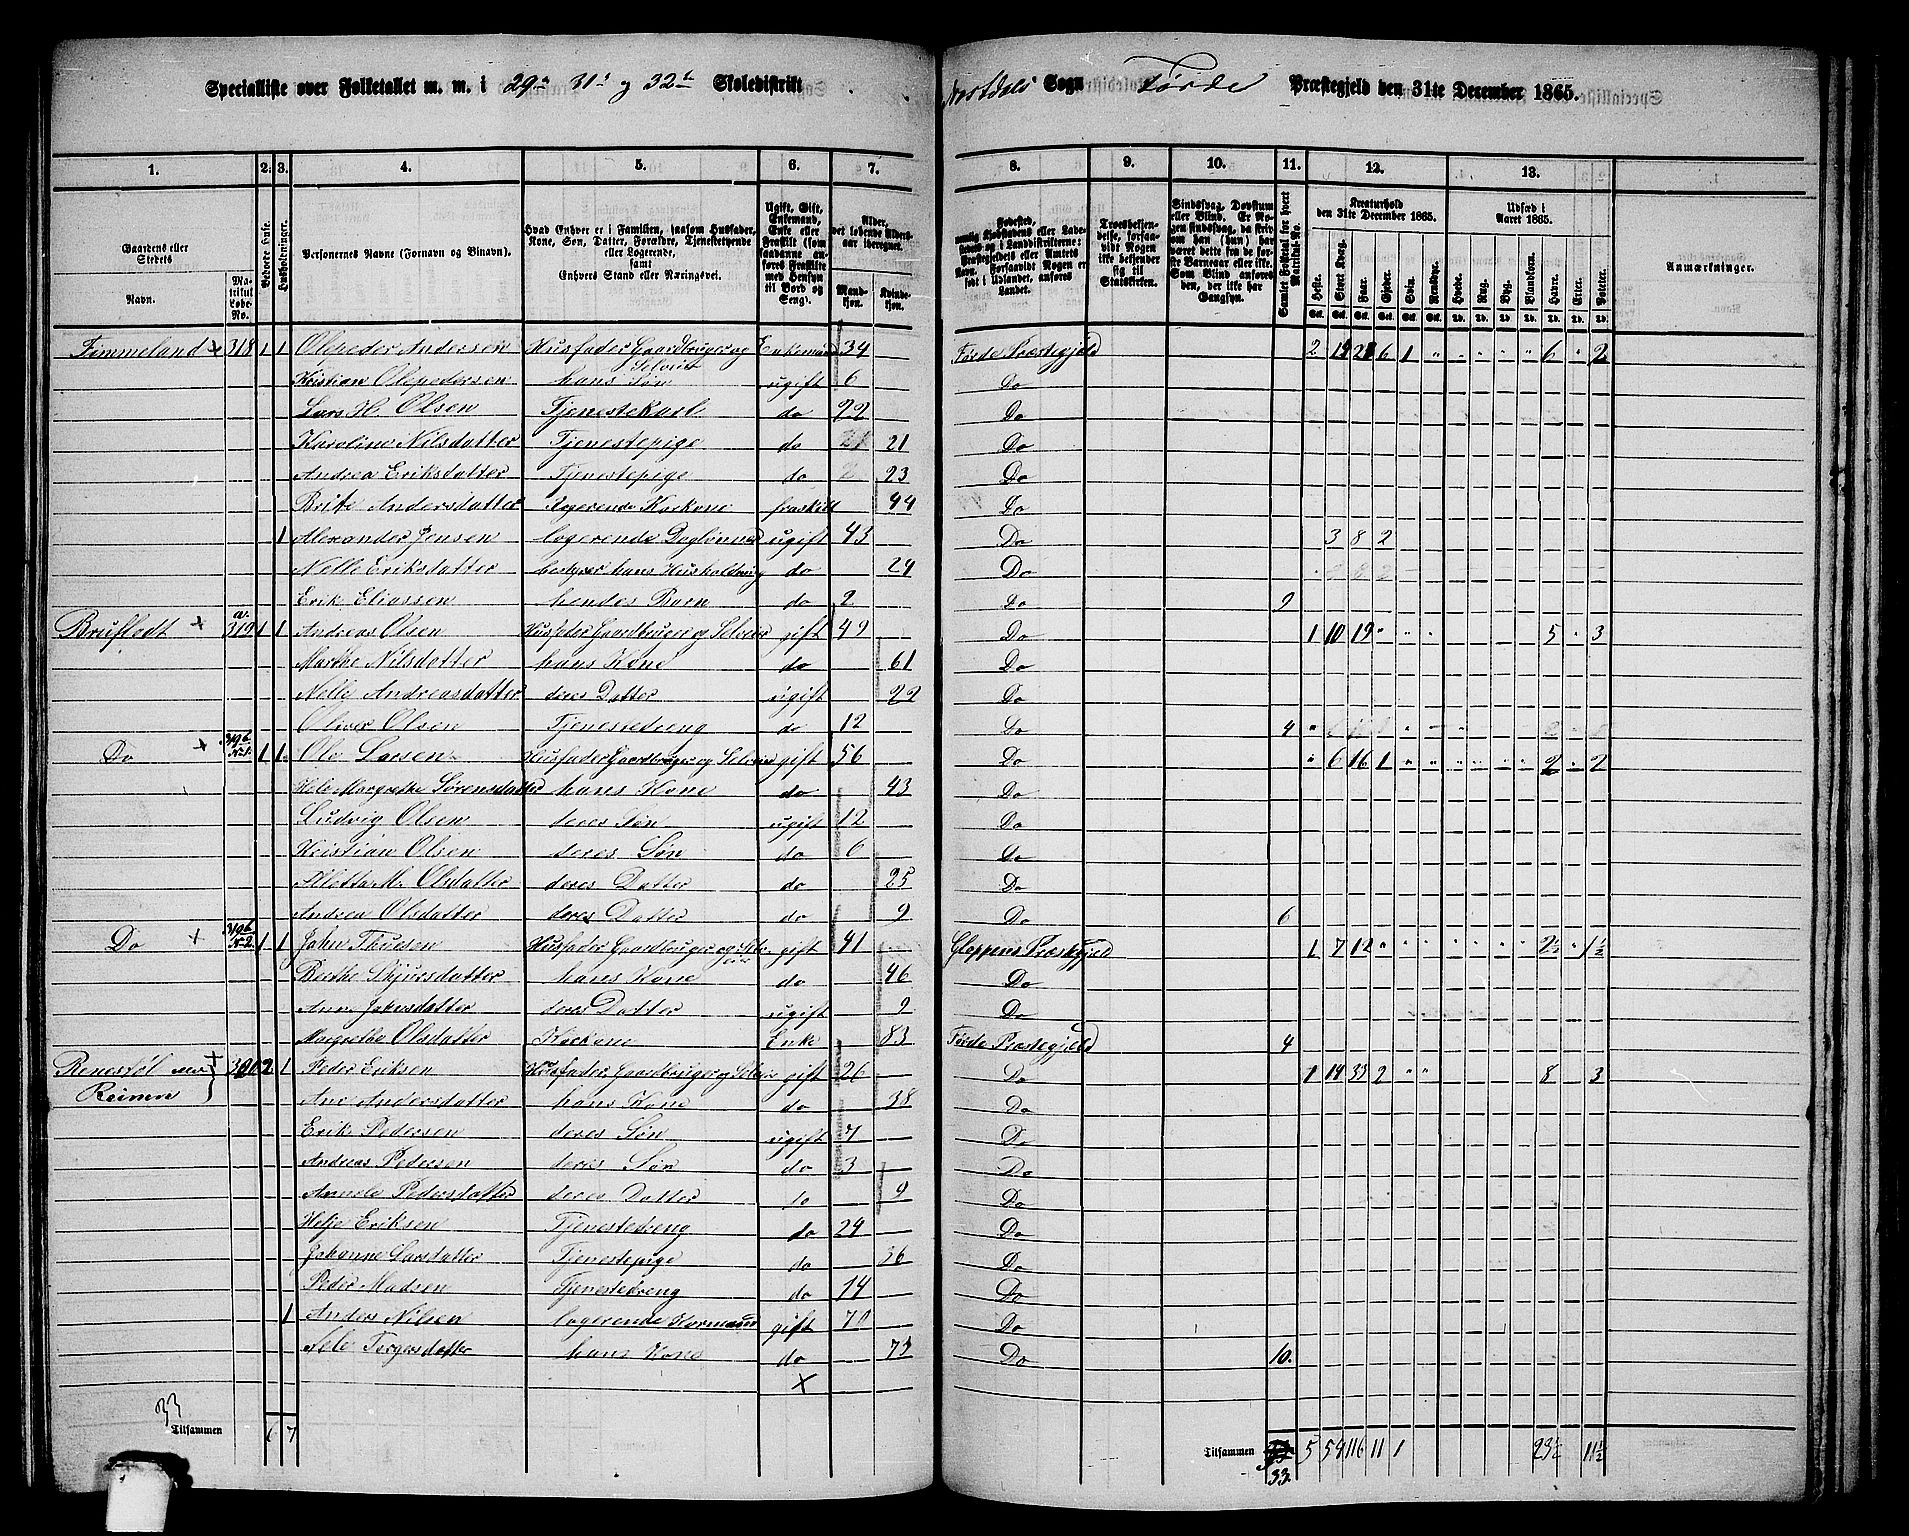 Specialliste over Folketallet m. m. i 29de 31te og 32te Skoledistrikt Nostdals Sogn Förde Præstegjeld den 31te December 1865.
1. 2. 3. 4. 5. 6. 7. 8. 9. 10. 11. 12. 13.
Gaardens eller Stedets Navn. Matrikul Løbe-No. Beboede Huse. Husholdninger. Personernes Navne (Fornavn og Tilnavn). Hvad Enhver er i Familien, saasom Husfader, Kone, Søn, Datter, Forældre, Tjenestetyende eller Logerende, samt Enhvers Stand eller Næringsvei. Ugift, Gift, Enkemand, Enke eller Fraskilt Alder, det løbende Aldersaar iberegnet. Mandkjøn. Kvindekjøn. Kreaturhold den 31te December 1865. Udsæd i Aaret 1865. Anmærkninger.
Heste. Stort Kvæg. Faar. Gjeder. Svin. Rensdyr. Hvede. Rug. Byg. Blandkorn. Havre. Erter. Poteter.
Fimmeland 318 1 1 Olepeder Andersen Husfader Gaardbruger og Selveier Enkemand 34 Förde Præstegjeld 2 19 21 6 1 " " " " " 6 " 2
Kristian Olepedersen hans Søn ugift 6 Do
Lars H. Olsen Tjenestekarl do 22 Do
Karoline Nilsdatter Tjenestepige do 21 Do
Andrea Eriksdatter Tjenestepige do 23 Do
Brite Andersdatter Logerende Kaarkone fraskilt 44 Do
1 Alexander Jensen logerende Daglønner ugift 43 Do 3 8 2
Nelle Eriksdatter bestyrer hans Husholdning do 24 Do
Erik Eliassen hendes Barn do 2 Do 9
Brufledt a. 319 1 1 Andreas Olsen Husfader Gaardbruger og Selveier gift 49 Do 1 10 19 " " " 5 " 3
Marthe Nilsdatter hans Kone do 61 Do
Nelle Andreasdatter deres Datter ugift 22 Do
Oliver Olsen Tjenestedreng do 12 Do 4
Do 319b No 1. 1 1 Ole Larsen Husfader Gaardbruger og Selveier gift 56 Do " 6 16 1 " " " " " " 2 " 2
Hele Margrethe Sørensdatter hans Kone do 43 Do
Ludvig Olsen deres Søn ugift 12 Do
Kristian Olsen deres Søn do 6 Do
Aletta M. Olsdatter deres Datter do 25 Do
Andrea Olsdatter deres Datter do 9 Do 6
Do 319b No 2. 1 1 John Thuesen Husfader Gaardbruger og Selveier gift 41 Gloppens Præstegjeld 1 7 12 " " " " " " " 2½ " 1½
Berthe Thjuesdatter hans Kone do 46 Do
Anne Johnsdatter deres Datter ugift 9 Do
Margrethe Olsdatter Kaarkone Enke 83 Förde Præstegjeld 4
Renestöl eller Reinen 320 2 1 Peder Eriksen Husfader, Gaardbruger og Selveier gift 26 Do 1 14 33 2 " " 8 3
Ane Andersdatter hans Kone do 38 Do
Erik Pedersen deres Søn ugift 7 Do
Andreas Pedersen deres Søn do 3 Do
Annele Pedersdatter deres Datter do 9 Do
Helje Eriksen Tjenestedreng do 24 Do
Johanne Larsdatter Tjenestepige do 36 Do
Peder Madsen Tjenestedreng do 14 Do
1 Anders Nilsen logerende Kaarmand gift 70 Do
Nele Torgersdatter hans Kone do 73 Do 10.
33
Tilsammen 6 7 Tilsammen 33. 5 59 116 11 1 23½ 11½